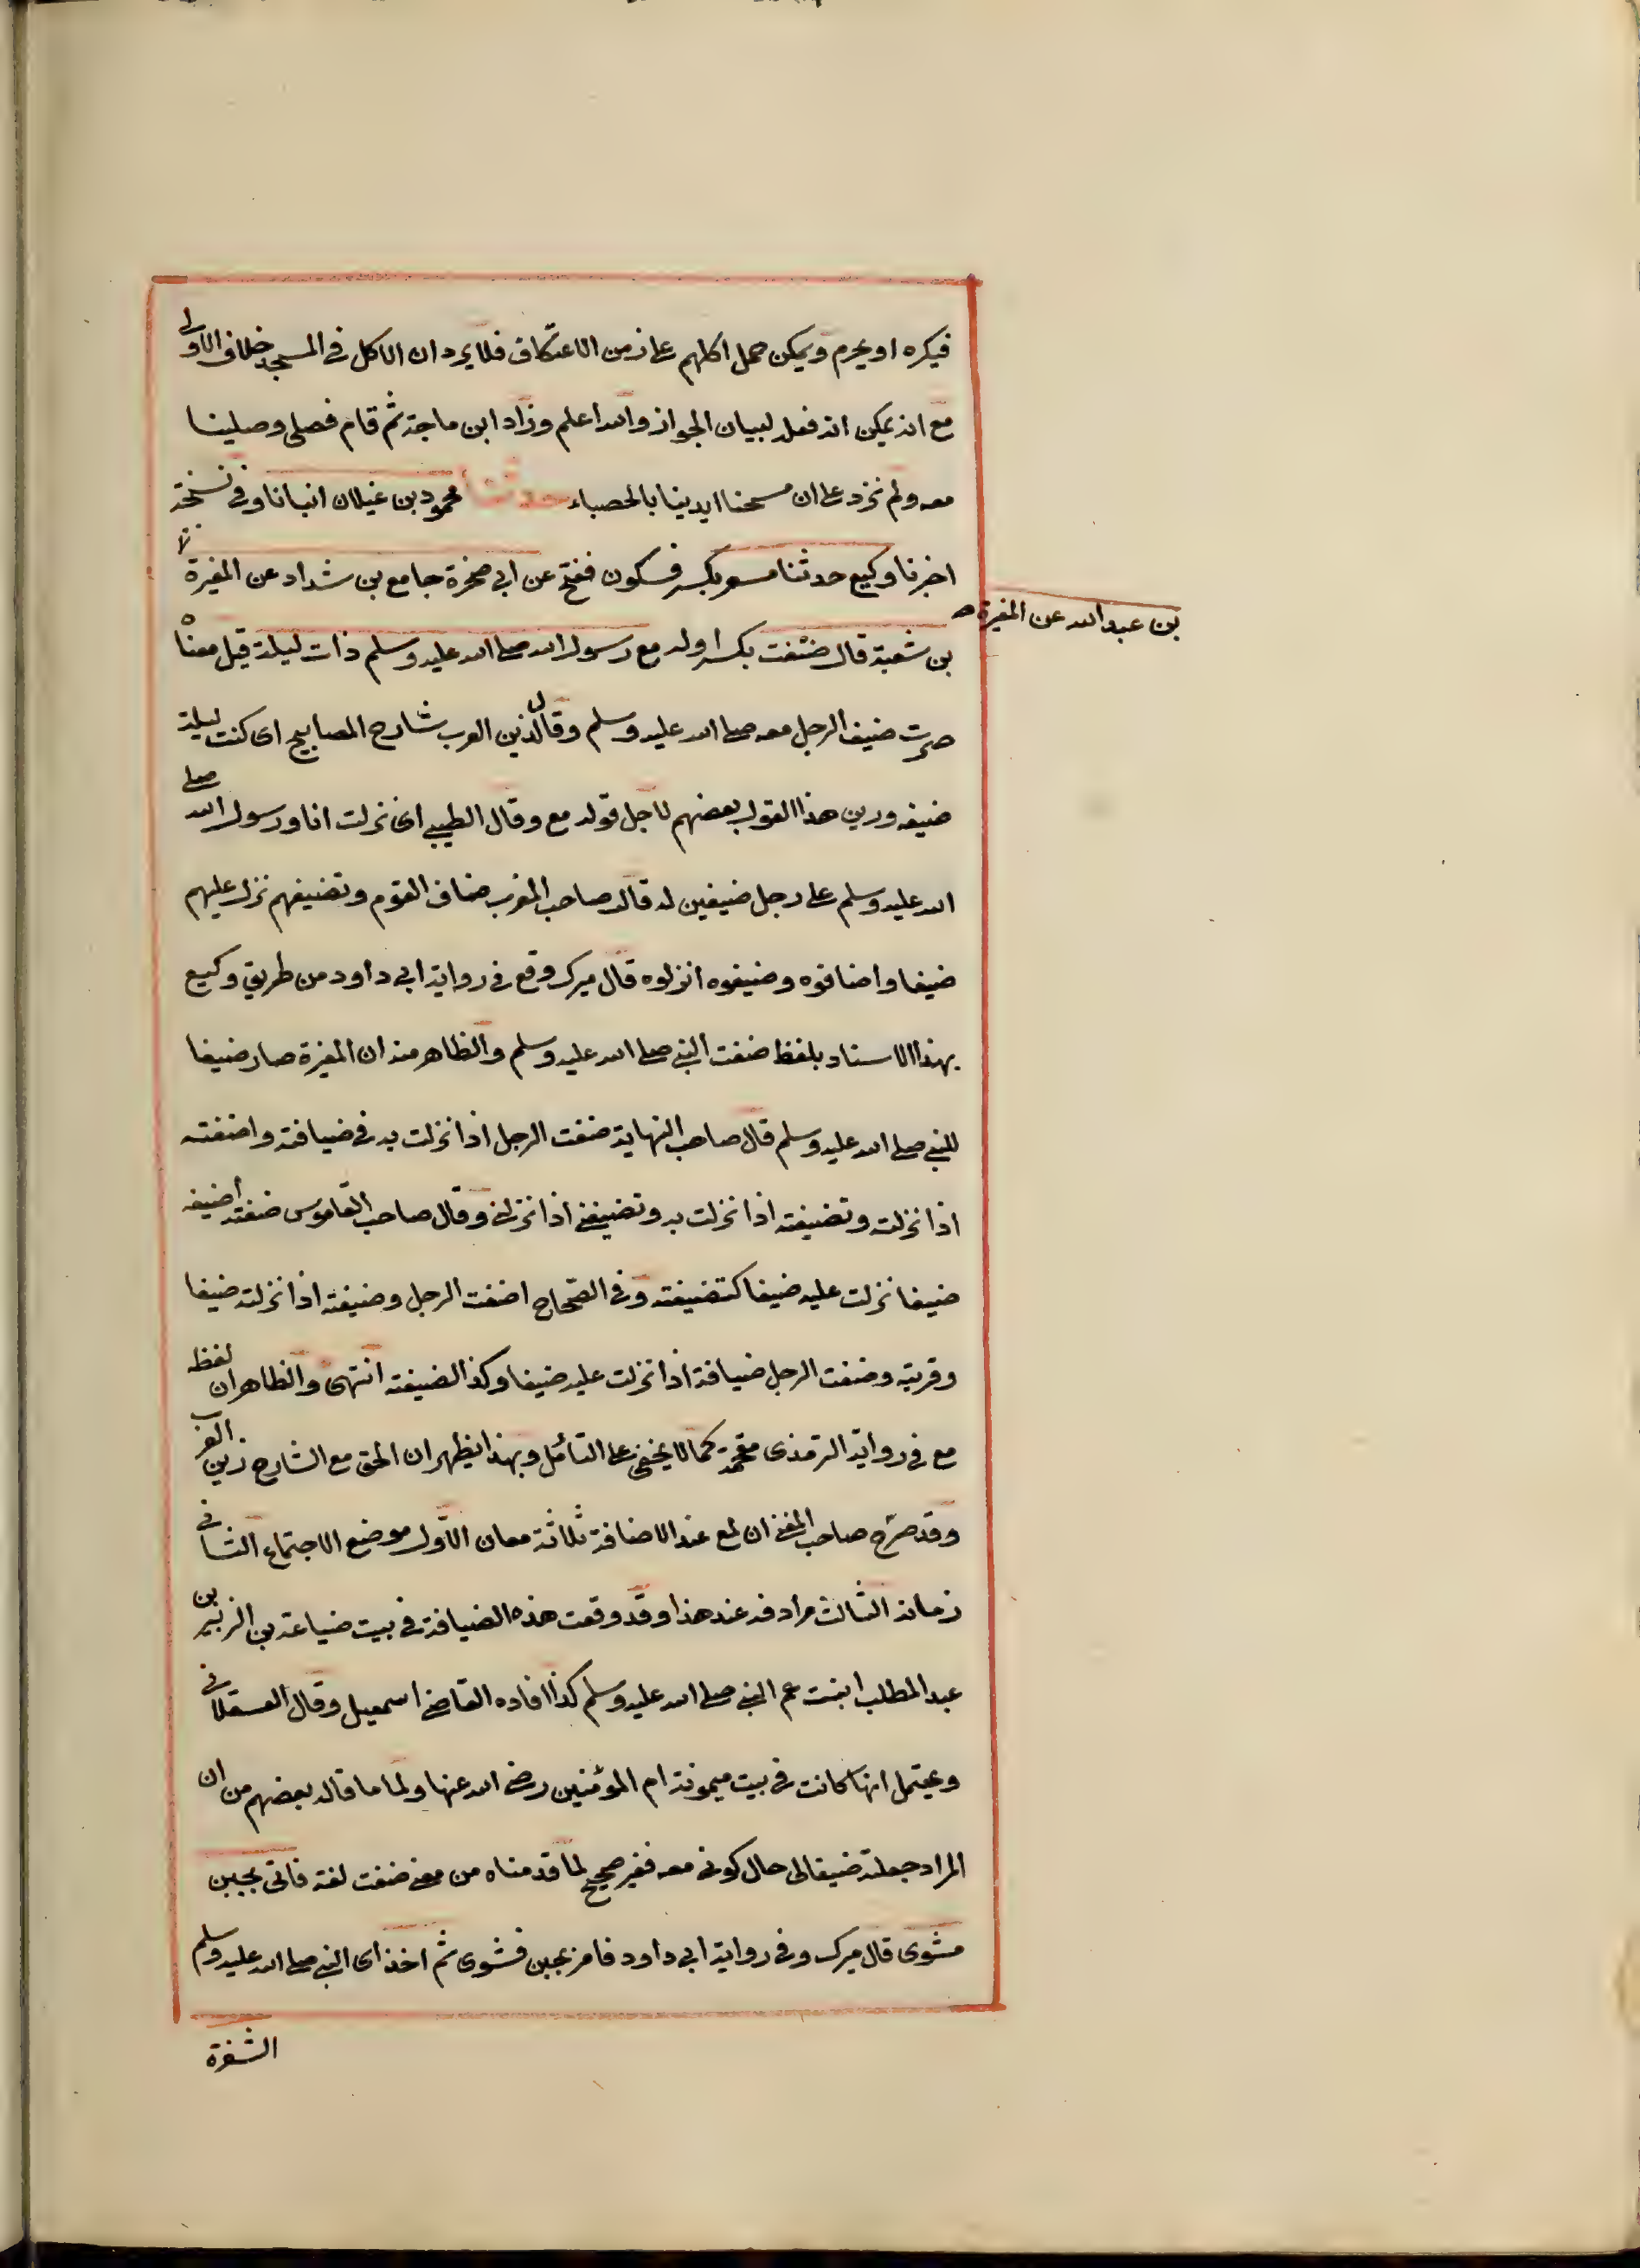 فيكره او يحرم ويمكن حمل اكلهم على زمن الاعتكاف فلا يرد ان الاكل في المسجد خلاف الاولى
مع انه يمكن انه فعله لبيان الجواز والله اعلم وزاد ابن ماجة ثم قام فصلى وصلينا
معه ولم نزد على ان مسحنا ايدينا بالحصباء حدثنا محمود بن غيلان انبانا وفي نسخة
اخبرنا وكيع حدثنا مسعر بكسر فسكون ففتح عن ابي صخرة جامع بن شداد عن المغيرة
بن عبد الله عن المغيرة صح
بن شعبة قال ضفت بكسر اوله مع رسول الله صلى الله عليه وسلم ذات ليلة قيل معناه
صرت ضيف الرجل معه صلى الله عليه وسلم وقال زين العرب شارح المصابيح اى كنت ليلة
ضيفه وزين هذا القول بعضهم لاجل قوله مع وقال الطيبي اى نزلت انا ورسول الله صلى
الله عليه وسلم على رجل ضيفين له قال صاحب المغرب ضاف القوم وتضيفهم نزل عليهم
ضيفا واضافوه وضيفوه انزلوه قال ميرك وقع في رواية ابي داود من طريق وكيع
بهذا الاسناد بلفظ ضفت النبي صلى الله عليه وسلم والظاهر منه ان المغيرة صار ضيفا
للنبي صلى الله عليه وسلم قال صاحب النهاية ضفت الرجل اذا نزلت به في ضيافة واضفته
اذا نزلته وتضيفته اذا نزلت به وتضيفني اذا نزلني وقال صاحب القاموس ضفته أضيفه
ضيفا نزلت عليه ضيفا كتضيفته وفي الصحاح اضفت الرجل وضيفته اذا نزلته ضيفا
وقريته وضفت الرجل ضيافة اذا نزلت عليه ضيفا وكذا لضيفته انتهى والظاهر ان لفظ
مع في رواية الترمذى مقحمة كما لا يخفى على التأمل وبهذا يظهر ان الحق مع الشارح زين العرب
وقد صرّح صاحب المغني ان لمع عند الاضافة ثلاثة معان الاول موضع الاجتماع الثاني
زمانه الثالث مرادفه عند هذا وقد وقعت هذه الضيافة في بيت ضباعة بن الزبير بن
عبد المطلب ابنت عم النبي صلى الله عليه وسلم كذا افاده القاضي اسمعيل وقال العسقلاني
ويحتمل انها كانت في بيت ميمونة ام المؤمنين رضي الله عنها ولما ما قاله بعضهم من ان
المراد جعلته ضيفا لى حال كوني معه فغير صحيح لما قدمناه من معنى ضفت لغة فاتى بجنب
مشوى قال ميرك وفي رواية ابي داود فامر بجنب فشوى ثم اخذ اى النبي صلى الله عليه وسلم
الشفرة